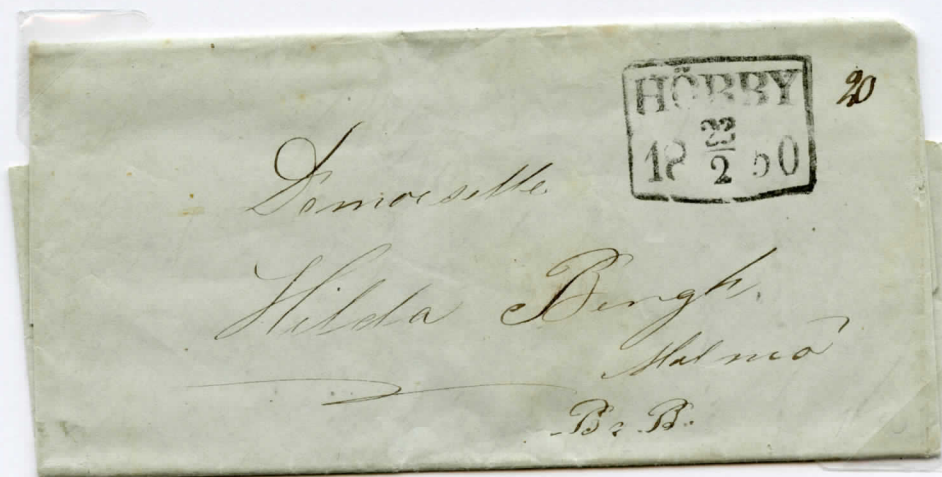 HÖRBY
18 22/2 50
20
Demoiselle
Hilda Bergh
Malmö
B. B.